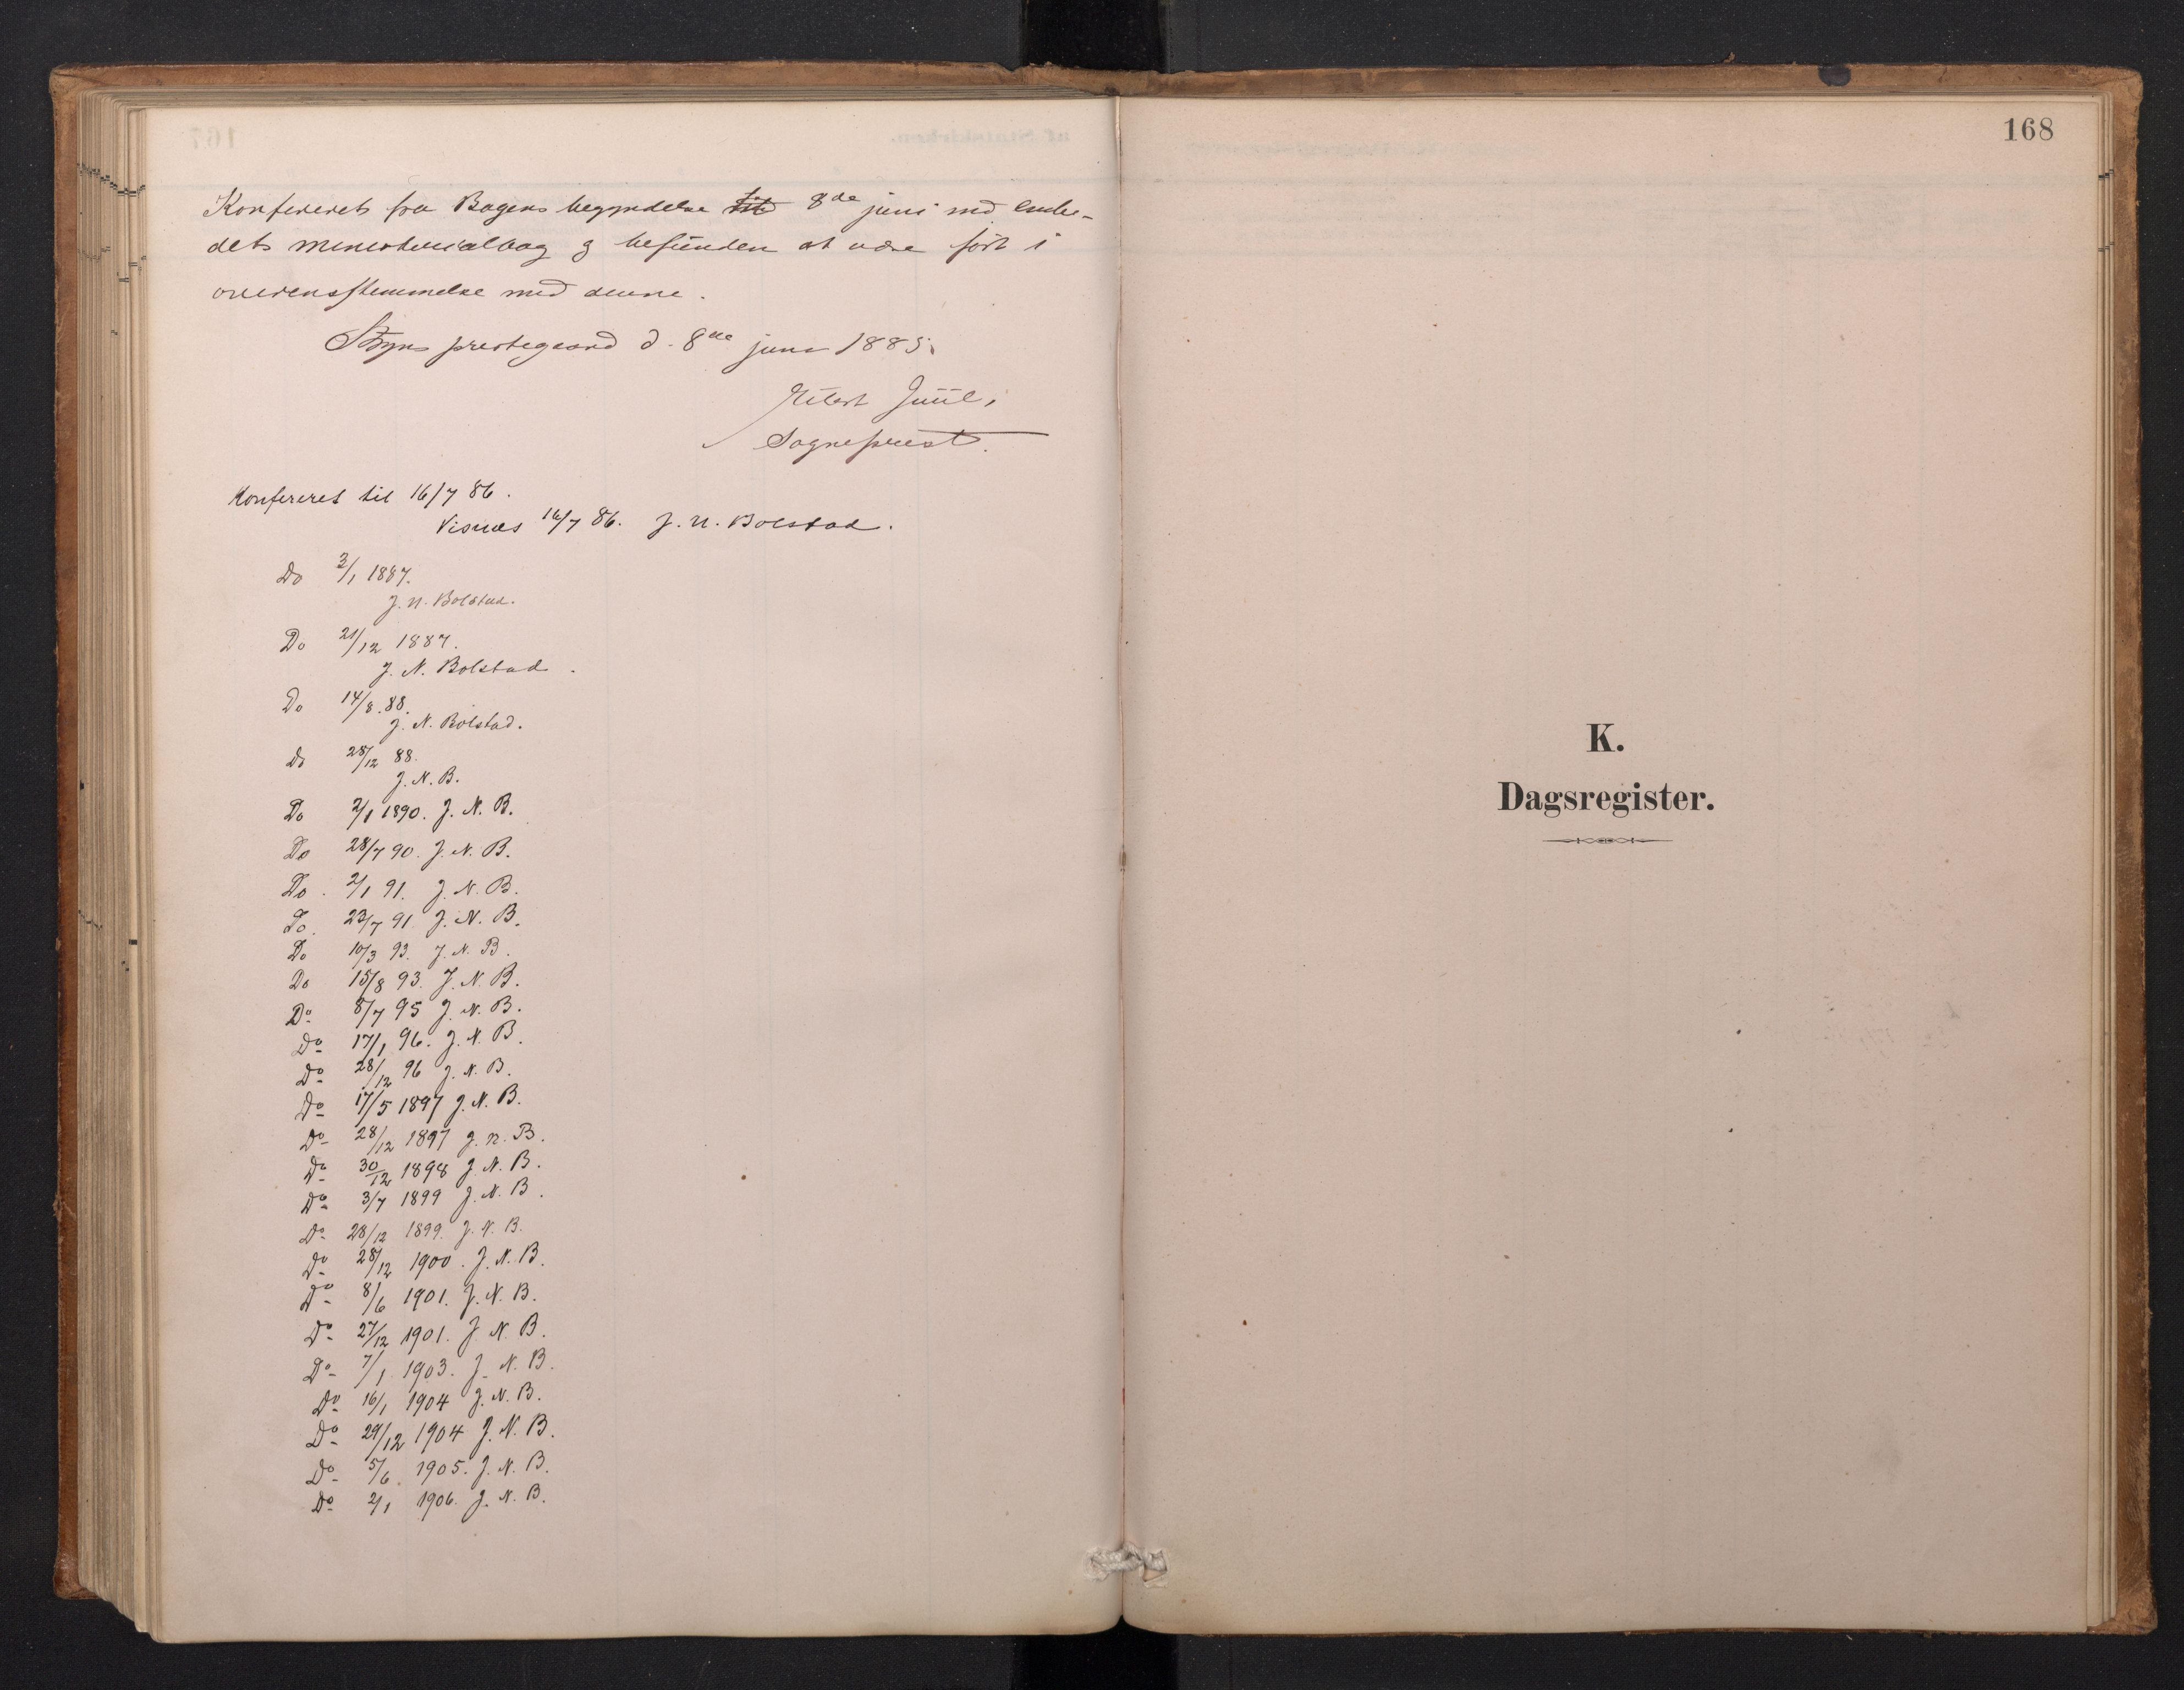 Konfereret fra Bogens begyndelse til 8de juni med embe-
dets ministerialbog og befunden at være ført i
overensstemmelse med denne.
Stryns prestegaard d. 8de juni 1885.
Juul,
Sogneprest.
Konfereret til 16/7 86.
Visnes 16/7 86. J. N. Bolstad.
Do 3/1 1887.
J. N. Bolstad.
Do 21/12 1887.
J. N. Bolstad.
Do 14/8. 88.
J. N. Bolstad.
Do 28/12 88.
J. N. B.
Do 2/1 1890. J. N. B.
Do 28/7 90. J. N. B.
Do. 2/1 91. J. N. B.
Do. 23/7 91. J. N. B.
Do 10/3 93. J. N. B.
Do 15/8 93. J. N. B.
Do 8/7 95 J. N. B.
Do 17/1 96. J. N. B.
Do 28/12 96 J. N. B.
Do 17/5 1897 J. N. B.
Do 28/12 1897 J. N. B.
Do 30/12 1898 J. N. B.
Do 3/7 1899 J. N. B.
Do 28/12 1899. J. N. B.
Do 28/12 1900. J. N. B.
Do 8/6 1901. J. N. B.
Do 27/12 1901. J. N. B.
Do 7/1 1903. J. N. B.
Do 16/1 1904 J. N. B.
Do 29/12 1904 J. N. B.
Do 5/6 1905. J. N. B.
Do 2/1 1906. J. N. B.
168
K.
Dagsregister.